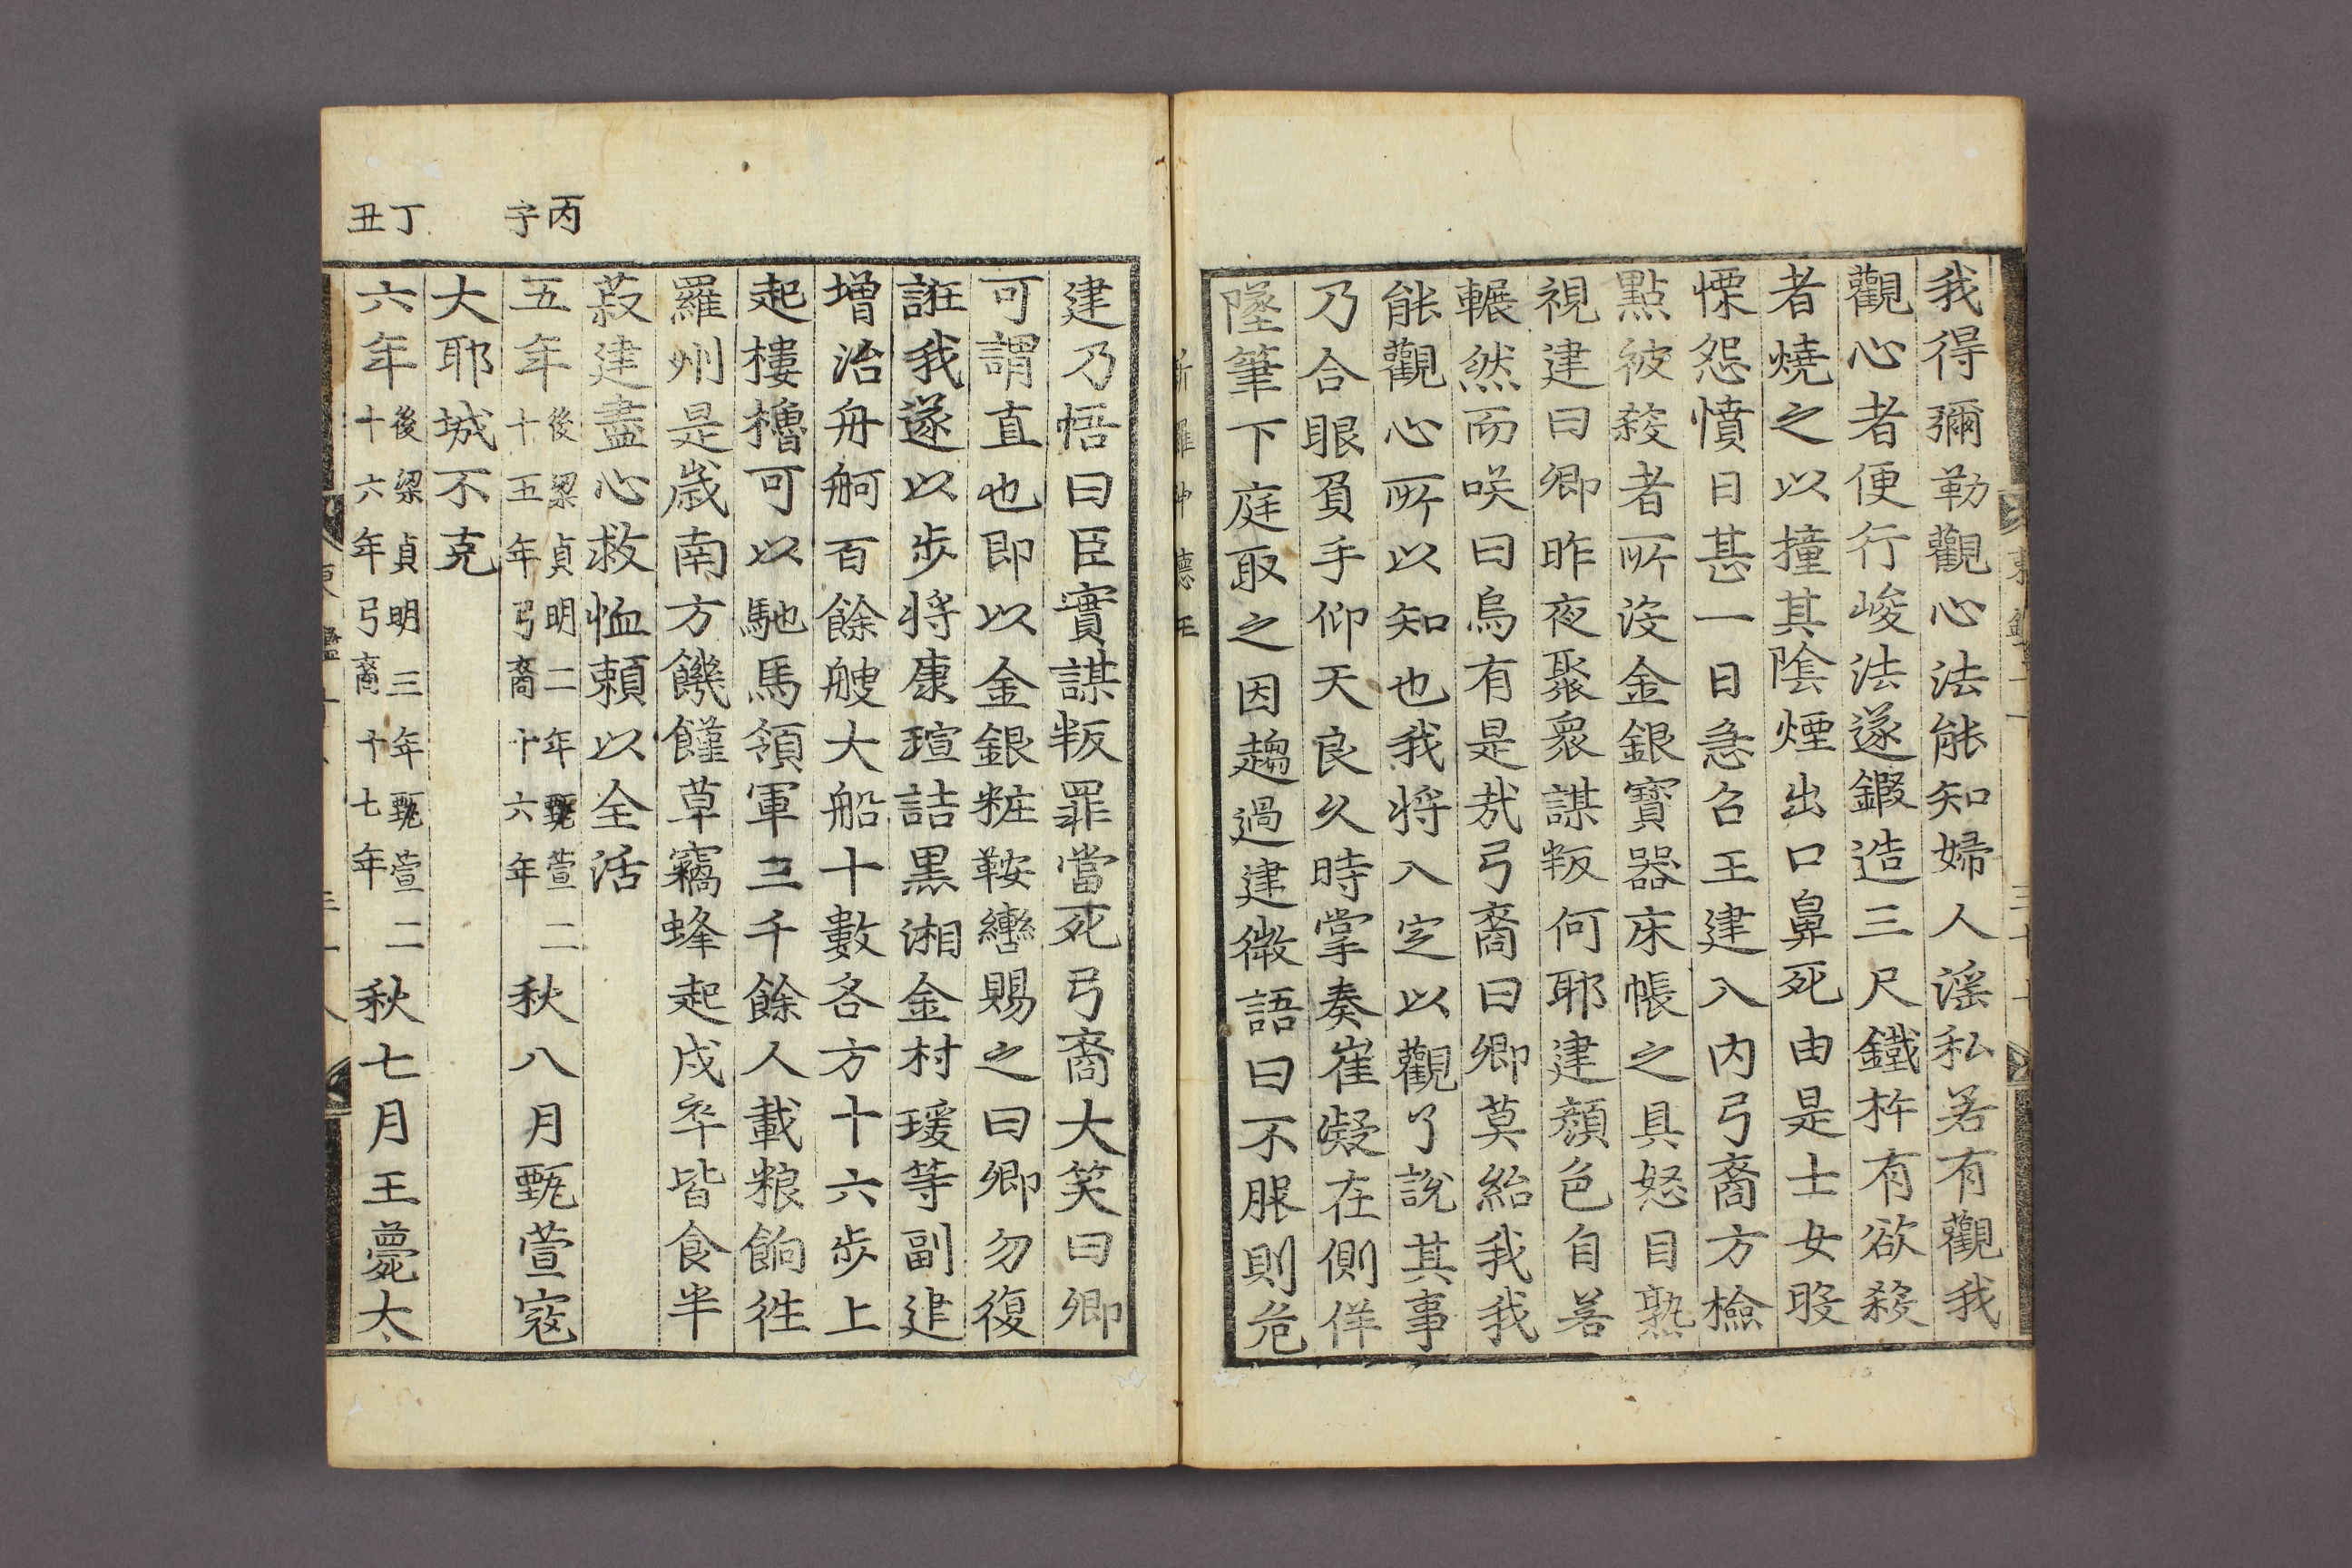 我得彌勒觀心法能知婦人滛私若有觀我
觀心者便行峻法遂鍜造三尺鐵杵有欲殺
者燒之以撞其陰煙出口鼻死由是士女股
慄怨憤日甚一日急召王建入内弓裔方檢
點彼殺者所沒金銀寶器床帳之具怒目熟
視建曰卿昨夜聚衆謀叛何耶建顏色自若
輾然而咲曰烏有是㢤弓裔曰卿莫紿我我
能觀心所以知也我將入定以觀了說其事
乃合眼負手仰天良久時掌奏崔凝在側佯
墜筆下庭取之因趨過建微語曰不服則危
新羅神德王
建乃悟曰臣實謀叛罪當死弓裔大笑曰卿
可謂直也即以金銀粧鞍轡賜之曰卿勿復
誑我遂以步將康瑄詰黒湘金村瑗等副建
增治舟舸百餘艘大船十數各方十六步上
起樓櫓可以馳馬領軍三千餘人載粮餉徃
羅州是歲南方饑饉草竊蜂起戍卒皆食半
菽建盡心救恤頼以全活
丙子
五年後梁貞明二年甄萱二十五年弓裔十六年秋八月甄萱寇
大耶城不克
丁丑
六年後梁貞明三年甄萱二十六年弓裔十七年秋七月王薨太